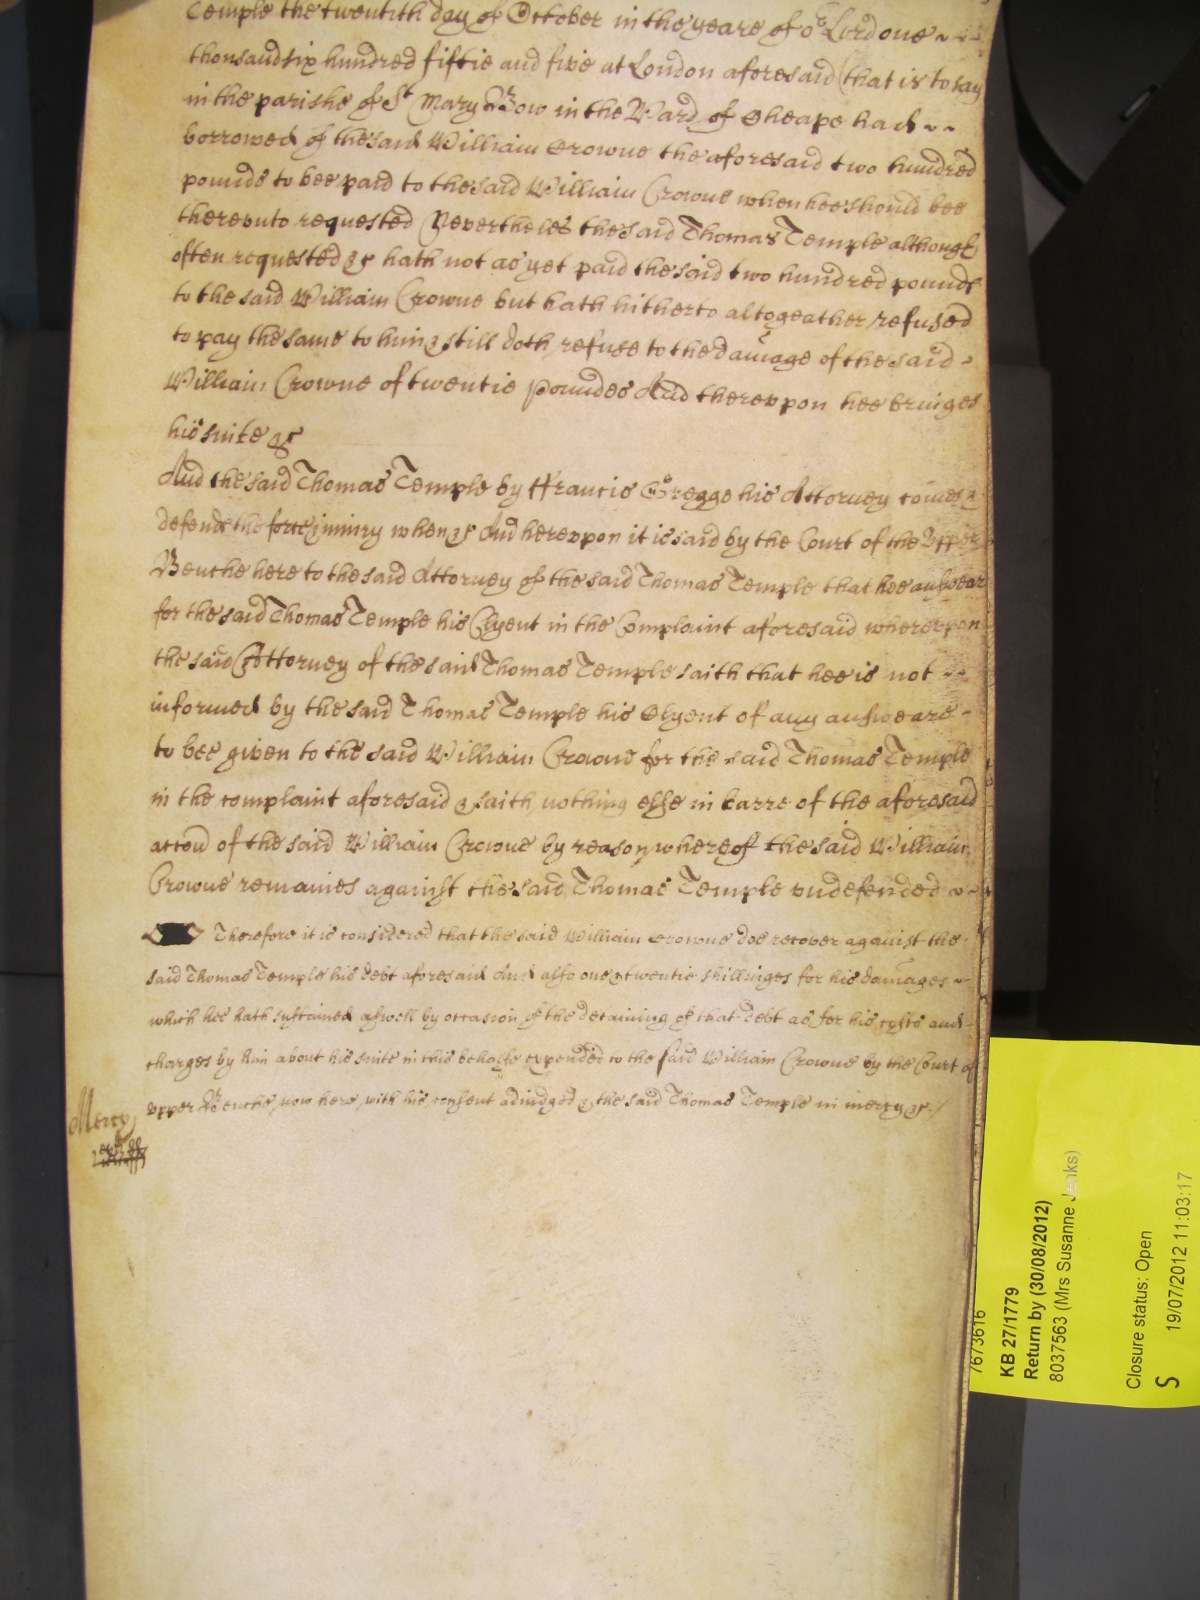 Temple the twentith day of October in the yeare of or Lord one
thousand six hundred fiftie and five at London aforesaid (that is to say
in the parishe of St Mary Bow in the Ward of Cheape had
borrowed of the said William Crowne the aforesaid two hundred
pounds to bee paid to the said William Crowne when hee should bee
therevnto requested Neverthelес the said Thomas Temple although
often requested &c hath not as yet paid the said two hundred pounds
to the said William Crowne but hath hitherto altogeather refused
to pay the same to him & still doth refuse to the damage of the said
William Crowne of twentie Poundes And therevpon hee bringes
his suite &c
And the said Thomas Temple by Francis Gregge his Attorney comes &
defends the force iniury when &c And herevpon it is said by the Court of the Vpper
Benche here to the said Attorney of the said Thomas Temple that hee answear
for the said Thomas Temple his Clyent in the Complaint aforesaid wherevpon
the said Attorney of the said Thomas Temple saith that hee is not
informed by the said Thomas Temple his Clyent of any answeare
to bee given to the said William Crowne for the said Thomas Temple
in the complaint aforesaid & saith nothing else in barre of the aforesaid
accon of the said William Crowne by reason whereof the said William
Crowne remaines against the said Thomas Temple vndefended
Therefore it is considered that the said William Crowne doe recover against the
said Thomas Temple his debt aforesaid And also one & twentie shillinges for his damages
which hee hath sustained aswell by occasion of the detaining of that debt as for his costs and
charges by him about his suite in this behalfe expended to the said William Crowne by the Court of
vpper Benche now here with his consent adiudged & the said Thomas Temple in mercy &c
Mercy
7673616
KB 27/1779
Return by (30/08/2012)
8037563 (Mrs Susanne Jenks)
Closure status: Open
S 19/07/2012 11:03:17